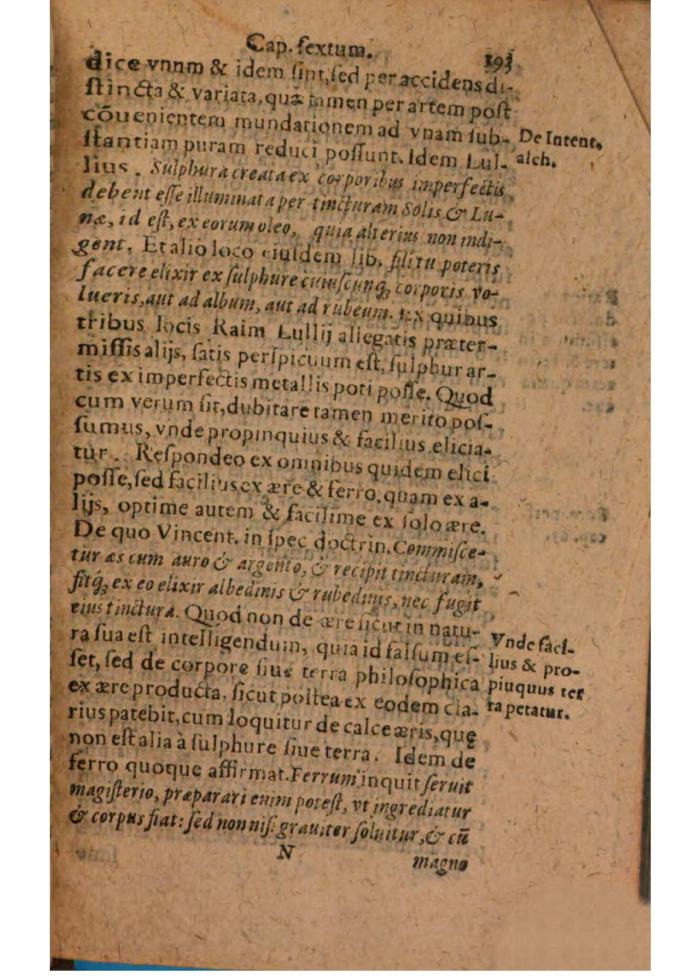 Cap. sextum. 193
dice vnum & idem sint, sed per accidens di-
stincta & variata, quæ tamen per artem post
cōuenientem mundationem ad vnam sub-
De Intent.
stantiam puram reduci possunt. Idem Lul-
alch.
lius. Sulphura creata ex corporibus imperfectis
debent esse illuminata per tincturam Solis & Lu-
næ, id est, ex eorum oleo, quia alterius non indi-
gent. Et alio loco eiusdem lib. fili tu poteris
facere elixir ex sulphure cuiuscunq; corporis vo-
lueris, aut ad album, aut ad rubeum. Ex quibus
tribus locis Raim Lullij allegatis præter-
missis alijs, satis perspicuum est, sulphur ar-
tis ex imperfectis metallis poti posse. Quod
cum verum sit, dubitare tamen merito pos-
sumus, vnde propinquius & facilius elicia-
tur. Respondeo ex omnibus quidem elici
posse, sed facilius ex ære & ferro, quam ex a-
lijs, optime autem & facilime ex solo ære.
De quo Vincent. in spec doctrin. Commisce-
tur æs cum auro & argento, & recipit tincturam,
fitq; ex eo elixir albedinis & rubedinis, nec fugit
eius tinctura. Quod non de ære sicut in natu-
ra sua est intelligendum, quia id falsum es-
Vnde faci-
set, sed de corpore siue terra philosophica
lius & pro-
ex ære producta, sicut postea ex eodem cla-
piuquus ter
rius patebit, cum loquitur de calce æris, quę
ra petatur.
non est alia à sulphure siue terra. Idem de
ferro quoque affirmat. Ferrum inquit seruit
magisterio, præparari enim potest, vt ingrediatur
& corpus fiat: sed non nisi grauiter soluitur, & cū
N
magno